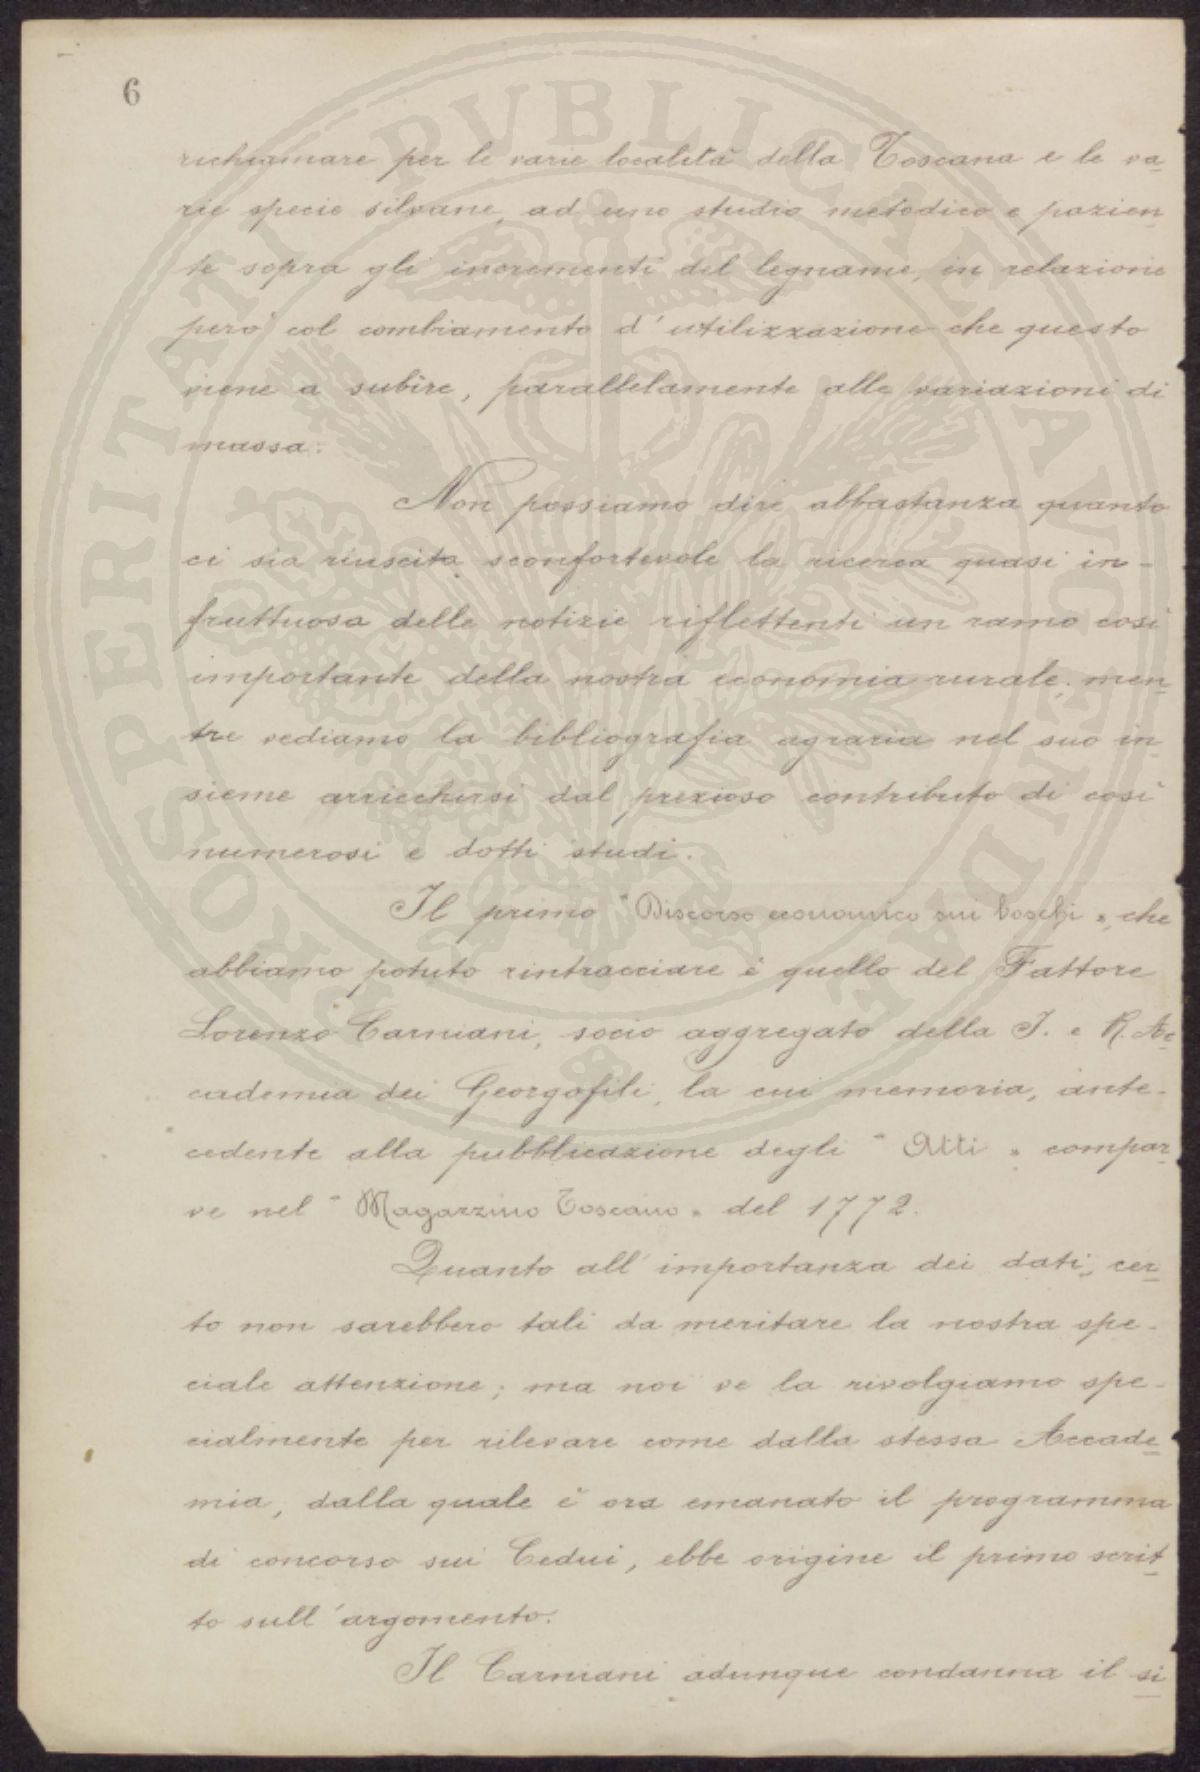 6
richiamare per le varie località della Toscana e le va-
rie specie silvane, ad uno studio metodico e pazien-
te sopra gli incrementi del legname, in relazione
però col cambiamento d'utilizzazione che questo
viene a subire, parallelamente alle variazioni di
massa.
Non possiamo dire abbastanza quanto
ci sia riuscita sconfortevole la ricerca quasi in-
fruttuosa delle notizie riflettenti un ramo così
importante della nostra economia rurale, men-
tre vediamo la bibliografia agraria nel suo in-
sieme arricchirsi dal prezioso contributo di così
numerosi e dotti studi.
Il primo "Discorso economico sui boschi", che
abbiamo potuto rintracciare è quello del Fattore
Lorenzo Carniani, socio aggregato della I. e R. Ac-
cademia dei Georgofili, la cui memoria, ante-
cedente alla pubblicazione degli "Atti" compar-
ve nel "Magazzino Toscano" del 1772.
Quanto all'importanza dei dati, cer-
to non sarebbero tali da meritare la nostra spe-
ciale attenzione; ma noi ve la rivolgiamo spe-
cialmente per rilevare come dalla stessa Accade-
mia, dalla quale è ora emanato il programma
di concorso sui Cedui, ebbe origine il primo scrit-
to sull'argomento.
Il Carniani adunque condanna il si
PROSPERITATI PUBLICAE AUGENDAE